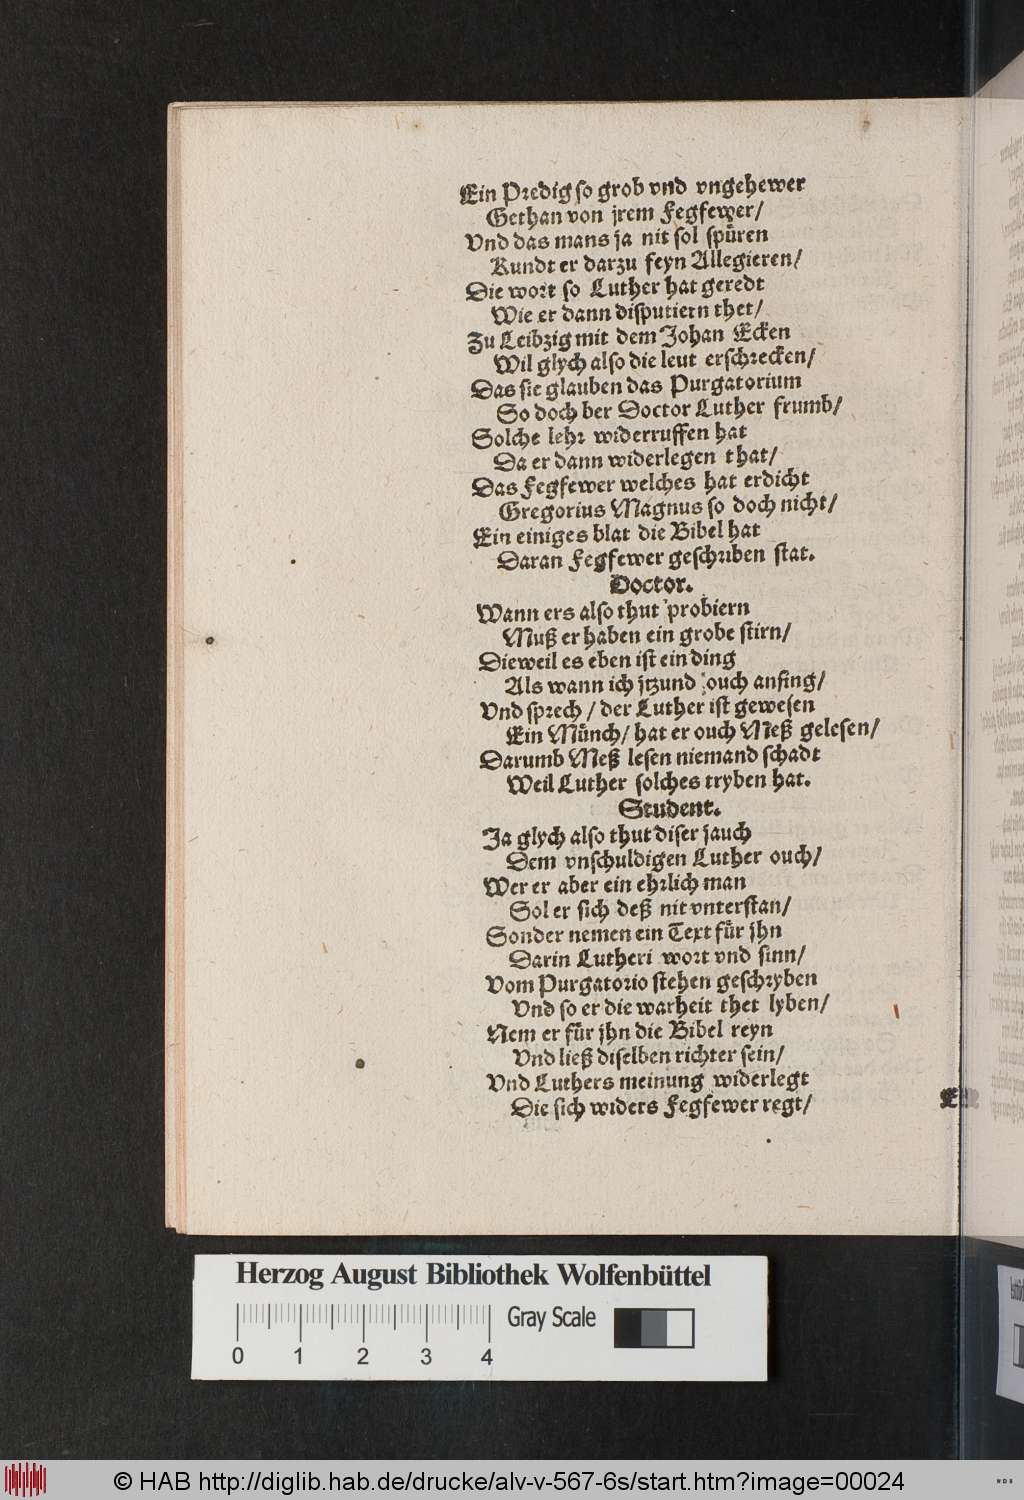 Ein Predig so grob vnd vngehewer
Gethan von jrem Fegfewer/
Vnd das mans ja nit sol spuͤren
Kundt er darzu feyn Allegieren/
Die wort so Luther hat geredt
Wie er dann disputiern thet/
Zu Leibzig mit dem Johan Ecken
Wil glych also die leut erschrecken/
Das sie glauben das Purgatorium
So doch ber Doctor Luther frumb/
Solche lehr widerruffen hat
Da er dann widerlegen that/
Das Fegfewer welches hat erdicht
Gregorius Magnus so doch nicht/
Ein einiges blat die Bibel hat
Daran Fegfewer geschriben stat.
Doctor.
Wann ers also thut probiern
Muß er haben ein grobe stirn/
Dieweil es eben ist ein ding
Als wann ich jtzund ouch anfing/
Vnd sprech / der Luther ist gewesen
Ein Muͤnch/ hat er ouch Meß gelesen/
Darumb Meß lesen niemand schadt
Weil Luther solches tryben hat.
Student.
Ja glych also thut diser jauch
Dem vnschuldigen Luther ouch/
Wer er aber ein ehrlich man
Sol er sich deß nit vnterstan/
Sonder nemen ein Text fuͤr jhn
Darin Lutheri wort vnd sinn/
Vom Purgatorio stehen geschryben
Vnd so er die warheit thet lyben/
Nem er fuͤr jhn die Bibel reyn
Vnd ließ diselben richter sein/
Vnd Luthers meinung widerlegt
Die sich widers Fegfewer regt/
Herzog August Bibliothek Wolfenbüttel
Gray Scale
0 1 2 3 4
© HAB http://diglib.hab.de/drucke/alv-v-567-6s/start.htm?image=00024